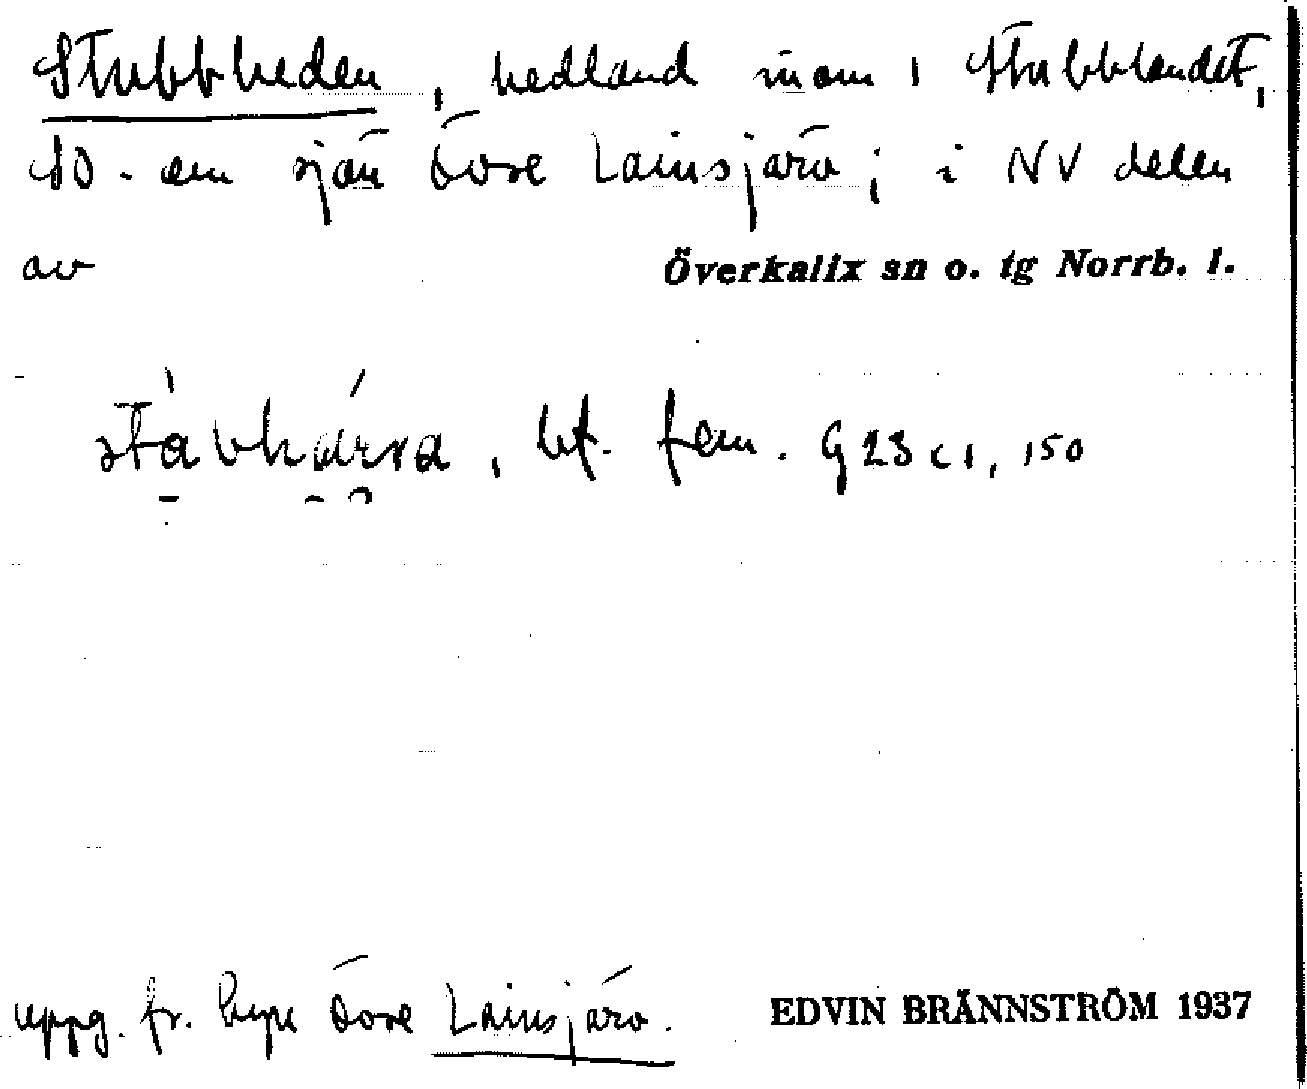 Stubbheden, hedland inom i Stubblandet,
SO. om sjön Övre Lainsjärv; i NV delen
av Överkalix sn o. tg Norrb. l.
, bf. fem. G23 c1, 150
uppg. fr. byn Övre Lainsjärv. EDVIN BRÄNNSTRÖM 1937